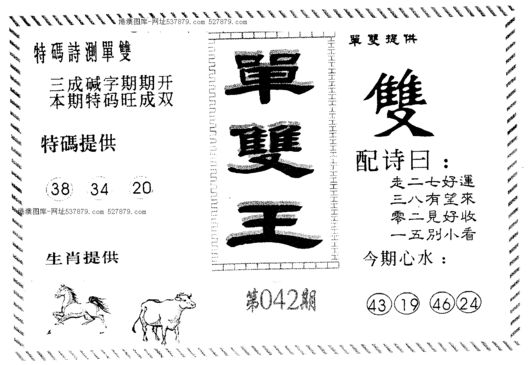 港澳图库-网址537879.com 527879.com
特碼詩測單雙
三成碱字期期开
本期特码旺成双
特碼提供
38 34 20
港澳图库-网址537879.com 527879.com
生肖提供
單雙王
第042期
單雙提供
雙
配诗曰：
走二七好運
三八有望來
零二見好收
一五別小看
今期心水：
43 19 46 24